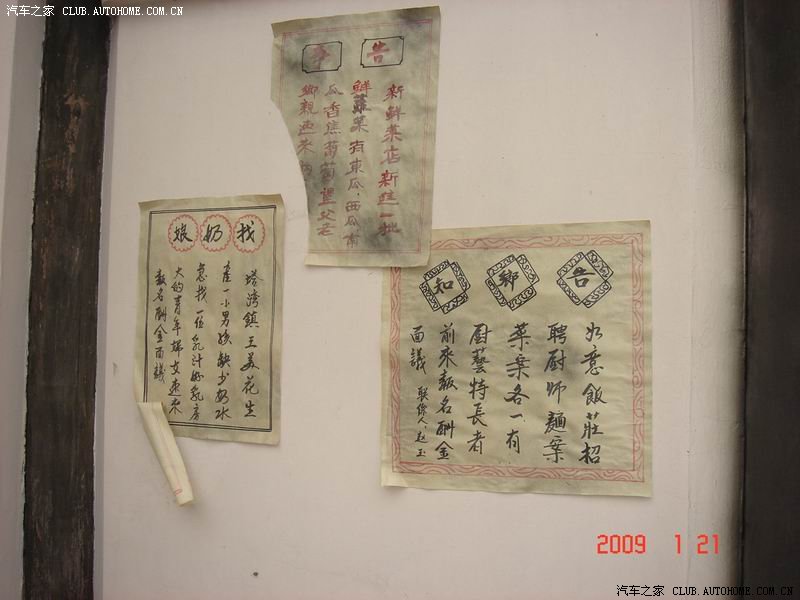 汽车之家 CLUB.AUTOHOME.COM.CN
告
新鮮菜店新進一批
鮮蔬菜有東瓜，西瓜南
瓜香焦葡萄望父老
鄉親速來
找奶娘
塔灣鎮王美花生
產一小男孩缺少奶水
急找一位乳汁好乳房
大的青年婦女速來
報名酬金面議
告鄉知
如意飯莊招
聘厨師麵案
菜案各一有
厨藝特長者
前來報名酬金
面議 联係人：赵玉
2009 1 21
汽车之家 CLUB.AUTOHOME.COM.CN